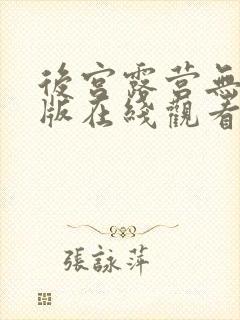 後宮露营無
版在綫觀看
張詠萍